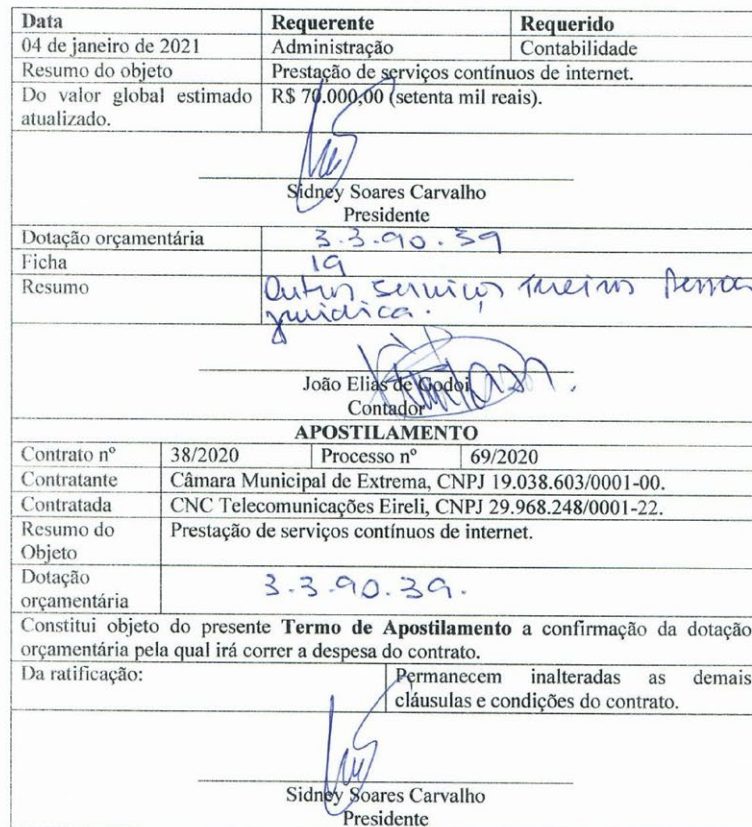 Data Requerente Requerido
04 de janeiro de 2021 Administração Contabilidade
Resumo do objeto Prestação de serviços contínuos de internet.
Do valor global estimado R$ 70.000,00 (setenta mil reais).
atualizado.
Sidney Soares Carvalho
Presidente
Dotação orçamentária 3.3.90.39
Ficha 19
Resumo Outros serviços Terceiros Pessoa
jurídica.
João Elias de Godoi
Contador
APOSTILAMENTO
Contrato nº 38/2020 Processo nº 69/2020
Contratante Câmara Municipal de Extrema, CNPJ 19.038.603/0001-00.
Contratada CNC Telecomunicações Eireli, CNPJ 29.968.248/0001-22.
Resumo do Prestação de serviços contínuos de internet.
Objeto
Dotação
orçamentária 3.3.90.39.
Constitui objeto do presente Termo de Apostilamento a confirmação da dotação
orçamentária pela qual irá correr a despesa do contrato.
Da ratificação: Permanecem inalteradas as demais
cláusulas e condições do contrato.
Sidney Soares Carvalho
Presidente